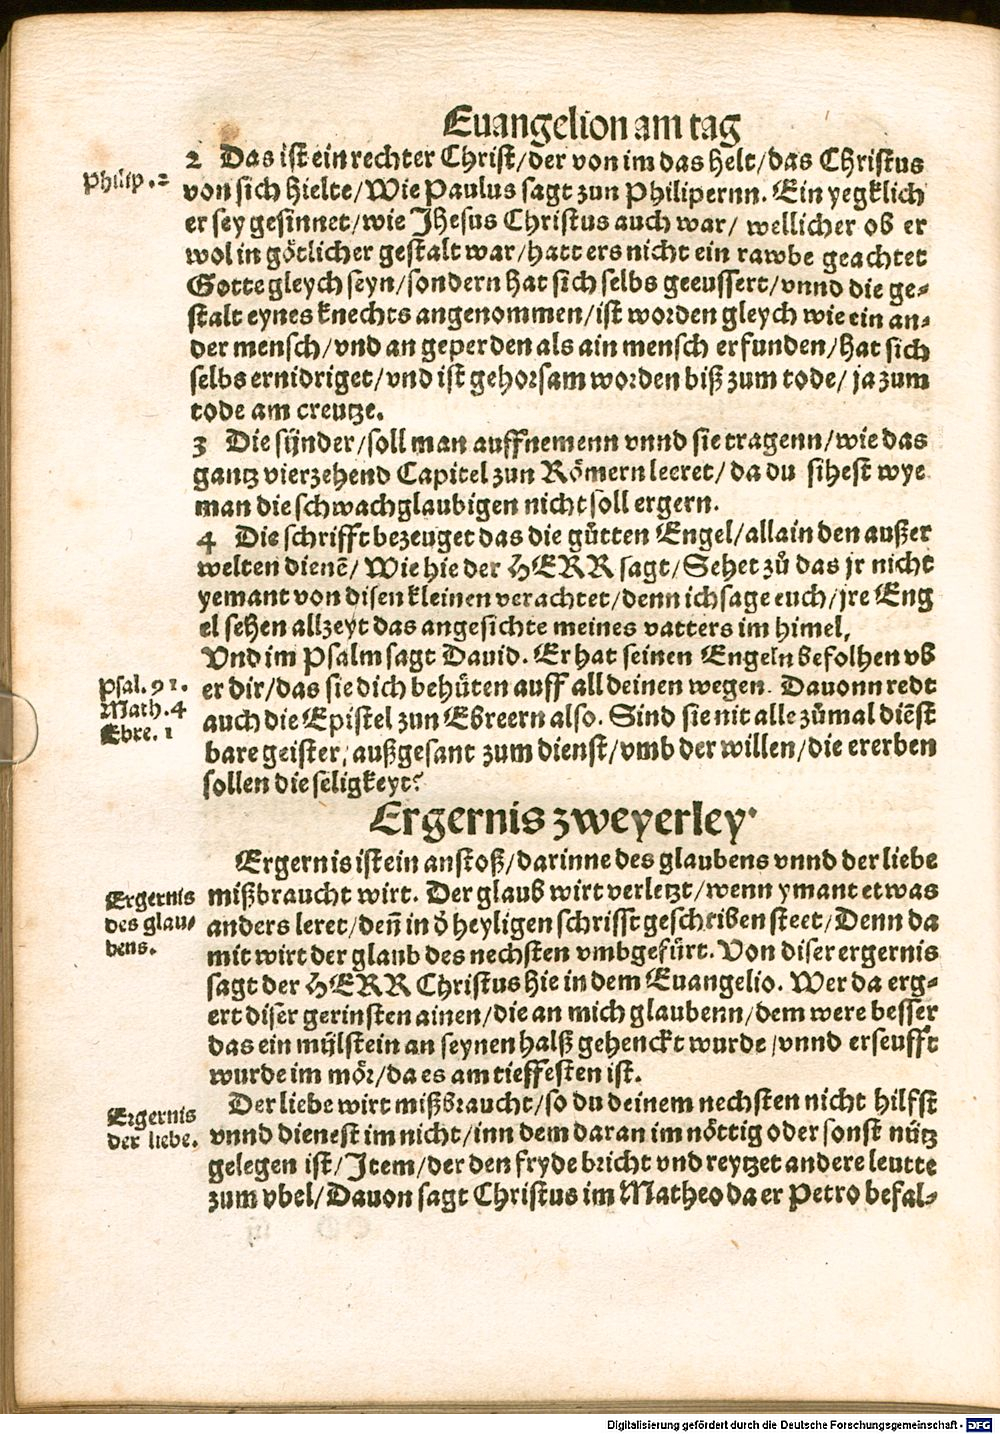 Euangelion am tag
Philip. 2
2 Das ist ein rechter Christ/der von im das helt/das Christus
von sich hielte/Wie Paulus sagt zun Philipernn. Ein yegklich
er sey gesinnet/wie Jhesus Christus auch war/ wellicher ob er
wol in götlicher gestalt war/hatt ers nicht ein rawbe geachtet
Gotte gleych seyn/sondern hat sich selbs geeussert/vnnd die ge-
stalt eynes knechts angenommen/ist worden gleych wie ein an-
der mensch/vnd an geperden als ain mensch erfunden/hat sich
selbs ernidriget/vnd ist gehorsam worden biß zum tode/ ja zum
tode am creutze.
3 Die sünder/soll man auffnemenn vnnd sie tragenn/wie das
gantz vierzehend Capitel zun Römern leeret/da du sihest wye
man die schwachglaubigen nicht soll ergern.
4 Die schrifft bezeuget das die gůtten Engel/allain den außer
welten dienẽ/ Wie hie der HERR sagt/Sehet zů das jr nicht
yemant von disen kleinen verachtet/denn ich sage euch/jre Eng
el sehen allzeyt das angesichte meines vatters im himel,
Vnd im Psalm sagt Dauid. Er hat seinen Engeln befolhen vb
Psal. 91.
Math. 4
Ebre. 1
er dir/das sie dich behüten auff all deinen wegen. Dauonn redt
auch die Epistel zun Ebreern also. Sind sie nit alle zůmal diẽst
bare geister, außgesant zum dienst/vmb der willen/die ererben
sollen die seligkeyt?
Ergernis zweyerley.
Ergernis ist ein anstoß/darinne des glaubens vnnd der liebe
Ergernis
des glau-
bens.
mißbraucht wirt. Der glaub wirt verletzt/wenn ymant etwas
anders leret/deñ in d̕ heyligen schrifft geschriben steet/Denn da
mit wirt der glaub des nechsten vmbgefürt. Von diser ergernis
sagt der HERR Christus hie in dem Euangelio. Wer da erg-
ert diser gerinsten ainen/die an mich glaubenn/dem were besser
das ein mülstein an seynen halß gehenckt wurde/vnnd erseufft
wurde im mör/da es am tieffesten ist.
Ergernis
der liebe.
Der liebe wirt mißbraucht/so du deinem nechsten nicht hilfst
vnnd dienest im nicht/inn dem daran im nöttig oder sonst nütz
gelegen ist/Item/der den fryde bricht vnd reytzet andere leutte
zum vbel/Dauon sagt Christus im Matheo da er Petro befal-
Digitalisierung gefördert durch die Deutsche Forschungsgemeinschaft - DFG